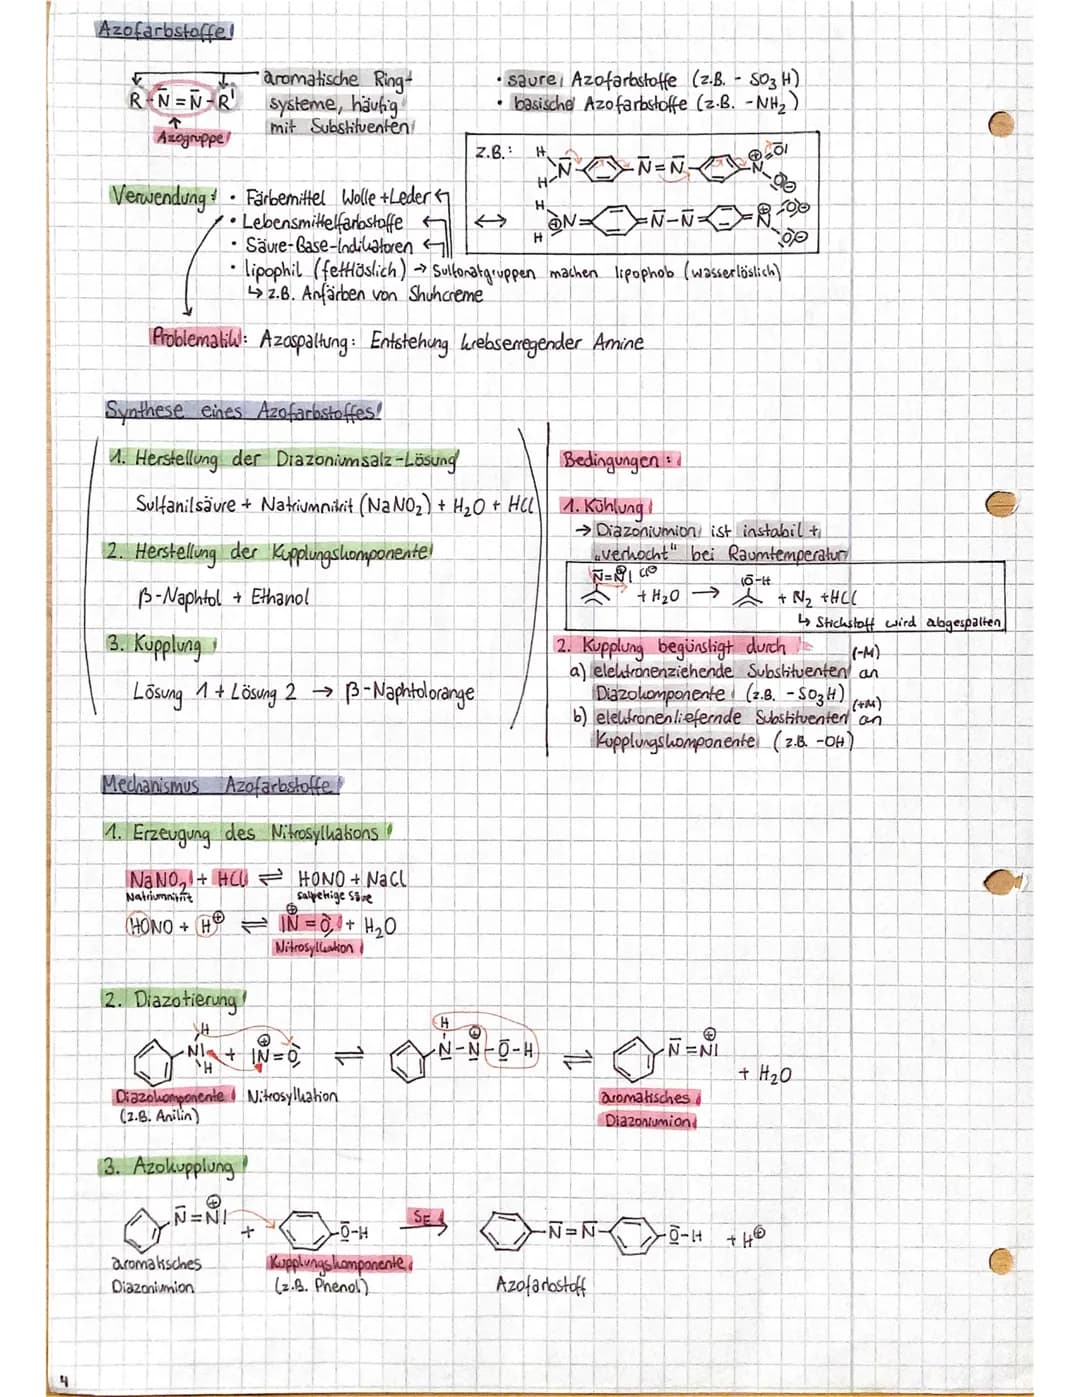 Azofarbstoffe
R-N̄=N̄-R'
Azogruppe
aromatische Ring-
systeme, häufig
mit Substituenten
• saure Azofarbstoffe (z.B. -SO₃H)
• basische Azofarbstoffe (z.B. -NH₂)
z.B.:
Verwendung: • Färbemittel Wolle + Leder
• Lebensmittelfarbstoffe
• Säure-Base-Indikatoren
• lipophil (fettlöslich) → Sulfonatgruppen machen lipophob (wasserlöslich)
↳ z.B. Anfärben von Shuhcreme
Problematik: Azospaltung: Entstehung krebserregender Amine
Synthese eines Azofarbstoffes
1. Herstellung der Diazoniumsalz-Lösung
Sulfanilsäure + Natriumnitrit (NaNO₂) + H₂O + HCl
2. Herstellung der Kupplungskomponente
β-Naphtol + Ethanol
3. Kupplung
Lösung 1 + Lösung 2 → β-Naphtolorange
Bedingungen:
1. Kühlung
→ Diazoniumion ist instabil +
„verkocht" bei Raumtemperatur
N̄=N⊕| Cl⊖ + H₂O → |Ō-H + N₂ + HCl
↳ Stickstoff wird abgespalten
2. Kupplung begünstigt durch
a) elektronenziehende Substituenten (-M) an
Diazokomponente (z.B. -SO₃H)
b) elektronenliefernde Substituenten (+M) an
Kupplungskomponente (z.B. -OH)
Mechanismus Azofarbstoffe
1. Erzeugung des Nitrosylkations
NaNO₂ + HCl ⇌ HONO + NaCl
Natriumnitrit salpetrige Säure
HONO + H⊕ ⇌ |N⊕=O + H₂O
Nitrosylkation
2. Diazotierung
H
NI + |N⊕=O ⇌ N̄-N⊕-Ō-H ⇌ N̄=N⊕|
H
+ H₂O
Diazokomponente Nitrosylkation
(z.B. Anilin)
aromatisches
Diazoniumion
3. Azokupplung
N̄=N⊕| + Ō-H SE → N̄=N̄ Ō-H + H⊕
aromatisches
Diazoniumion
Kupplungskomponente
(z.B. Phenol)
Azofarbstoff
4